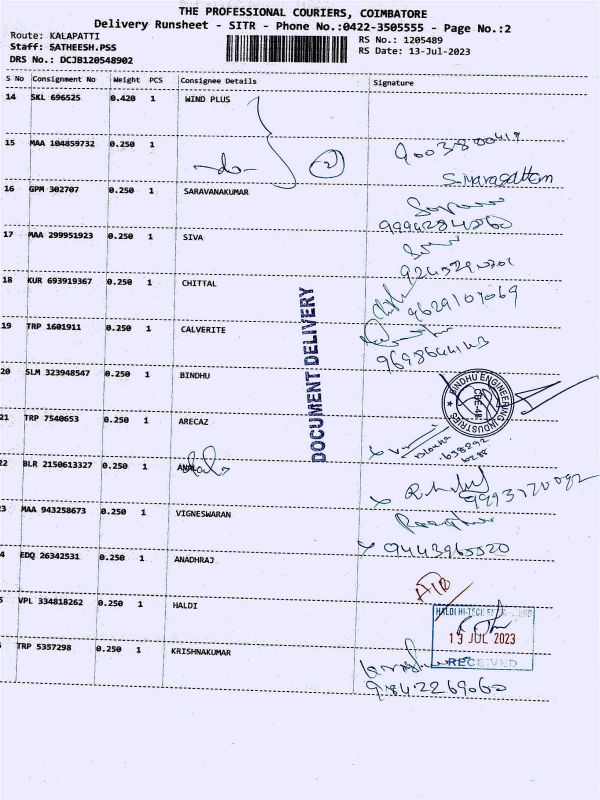 THE PROFESSIONAL COURIERS, COIMBATORE
Delivery Runsheet - SITR - Phone No.:0422-3505555 - Page No.:2
Route: KALAPATTI
Staff: SATHEESH.PSS
DRS No.: DCJB120548902
RS No.: 1205489
RS Date: 13-Jul-2023
S No Consignment No Weight PCS Consignee Details Signature
14 SKL 696525 0.420 1 WIND PLUS
15 MAA 104859732 0.250 1 -do- 2
16 GPM 302707 0.250 1 SARAVANAKUMAR
17 MAA 299951923 0.250 1 SIVA
18 KUR 693919367 0.250 1 CHITTAL
9629107069
19 TRP 1601911 0.250 1 CALVERITE
DOCUMENT DELIVERY
20 SLM 323948547 0.250 1 BINDHU
BINDHU ENGINEERING INDUSTRIES
CBE-48
21 TRP 7540653 0.250 1 ARECAZ
22 BLR 2150613327 0.250 1
3 MAA 943258673 0.250 1 VIGNESWARAN
9443965520
4 EDQ 26342531 0.250 1 ANADHRAJ
5 VPL 334818262 0.250 1 HALDI
HALDI HI-TECH
13 JUL 2023
RECEIVED
TRP 5357298 0.250 1 KRISHNAKUMAR
9842269060